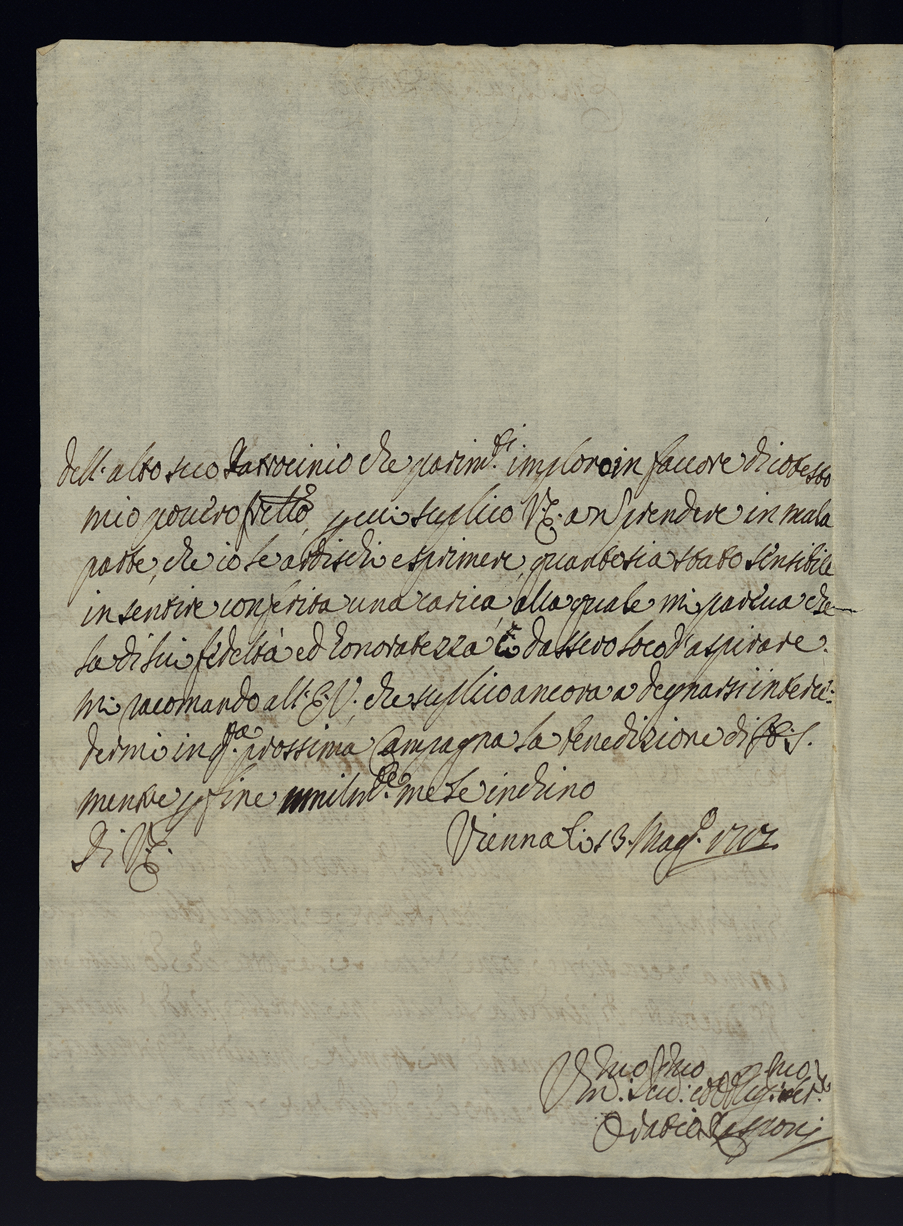 dell'alto suo Patrocinio che parim.ti imploro in favore di cotesto
mio povero frello, per cui suplico V.E. a n prendere in mala
parte, che io le ardischi esprimere, quanto sia stato sensibile
in sentire conferita una carica, alla quale mi pareva che
la di lui fedeltà ed honoratezza dassero loco d'aspirare.
Mi racomando all'E.V. che suplico ancora a degnarsi
dermi in q.ta prossima Campagna la benedizione di
mentre per fine umilm.te me le inchino
Di V.E.
Vienna li 13. Mag.o 1717
Um.mo Dev.mo ed Oblig.mo ser.